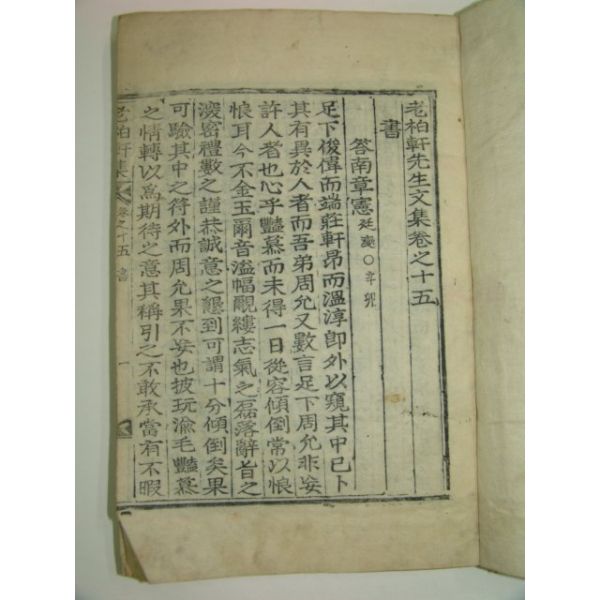 老柏軒先生文集卷之十五
書
答南章憲 廷燮○辛卯
足下俊偉而端莊軒昂而溫淳卽外以窺其中已卜
其有異於人者而吾弟周允又數言足下周允非妄
許人者也心乎艶慕而未得一日從容傾倒常以悵
恨耳今不金玉爾音溢幅覼縷志氣之磊落辭旨之
深密禮數之謹恭誠意之懇到可謂十分傾倒矣果
可驗其中之符外而周允果不妄也披玩渝毛艶慕
之情轉以爲期待之意其稱引之不敢承當有不暇
老柏軒集 卷之十五 書 一